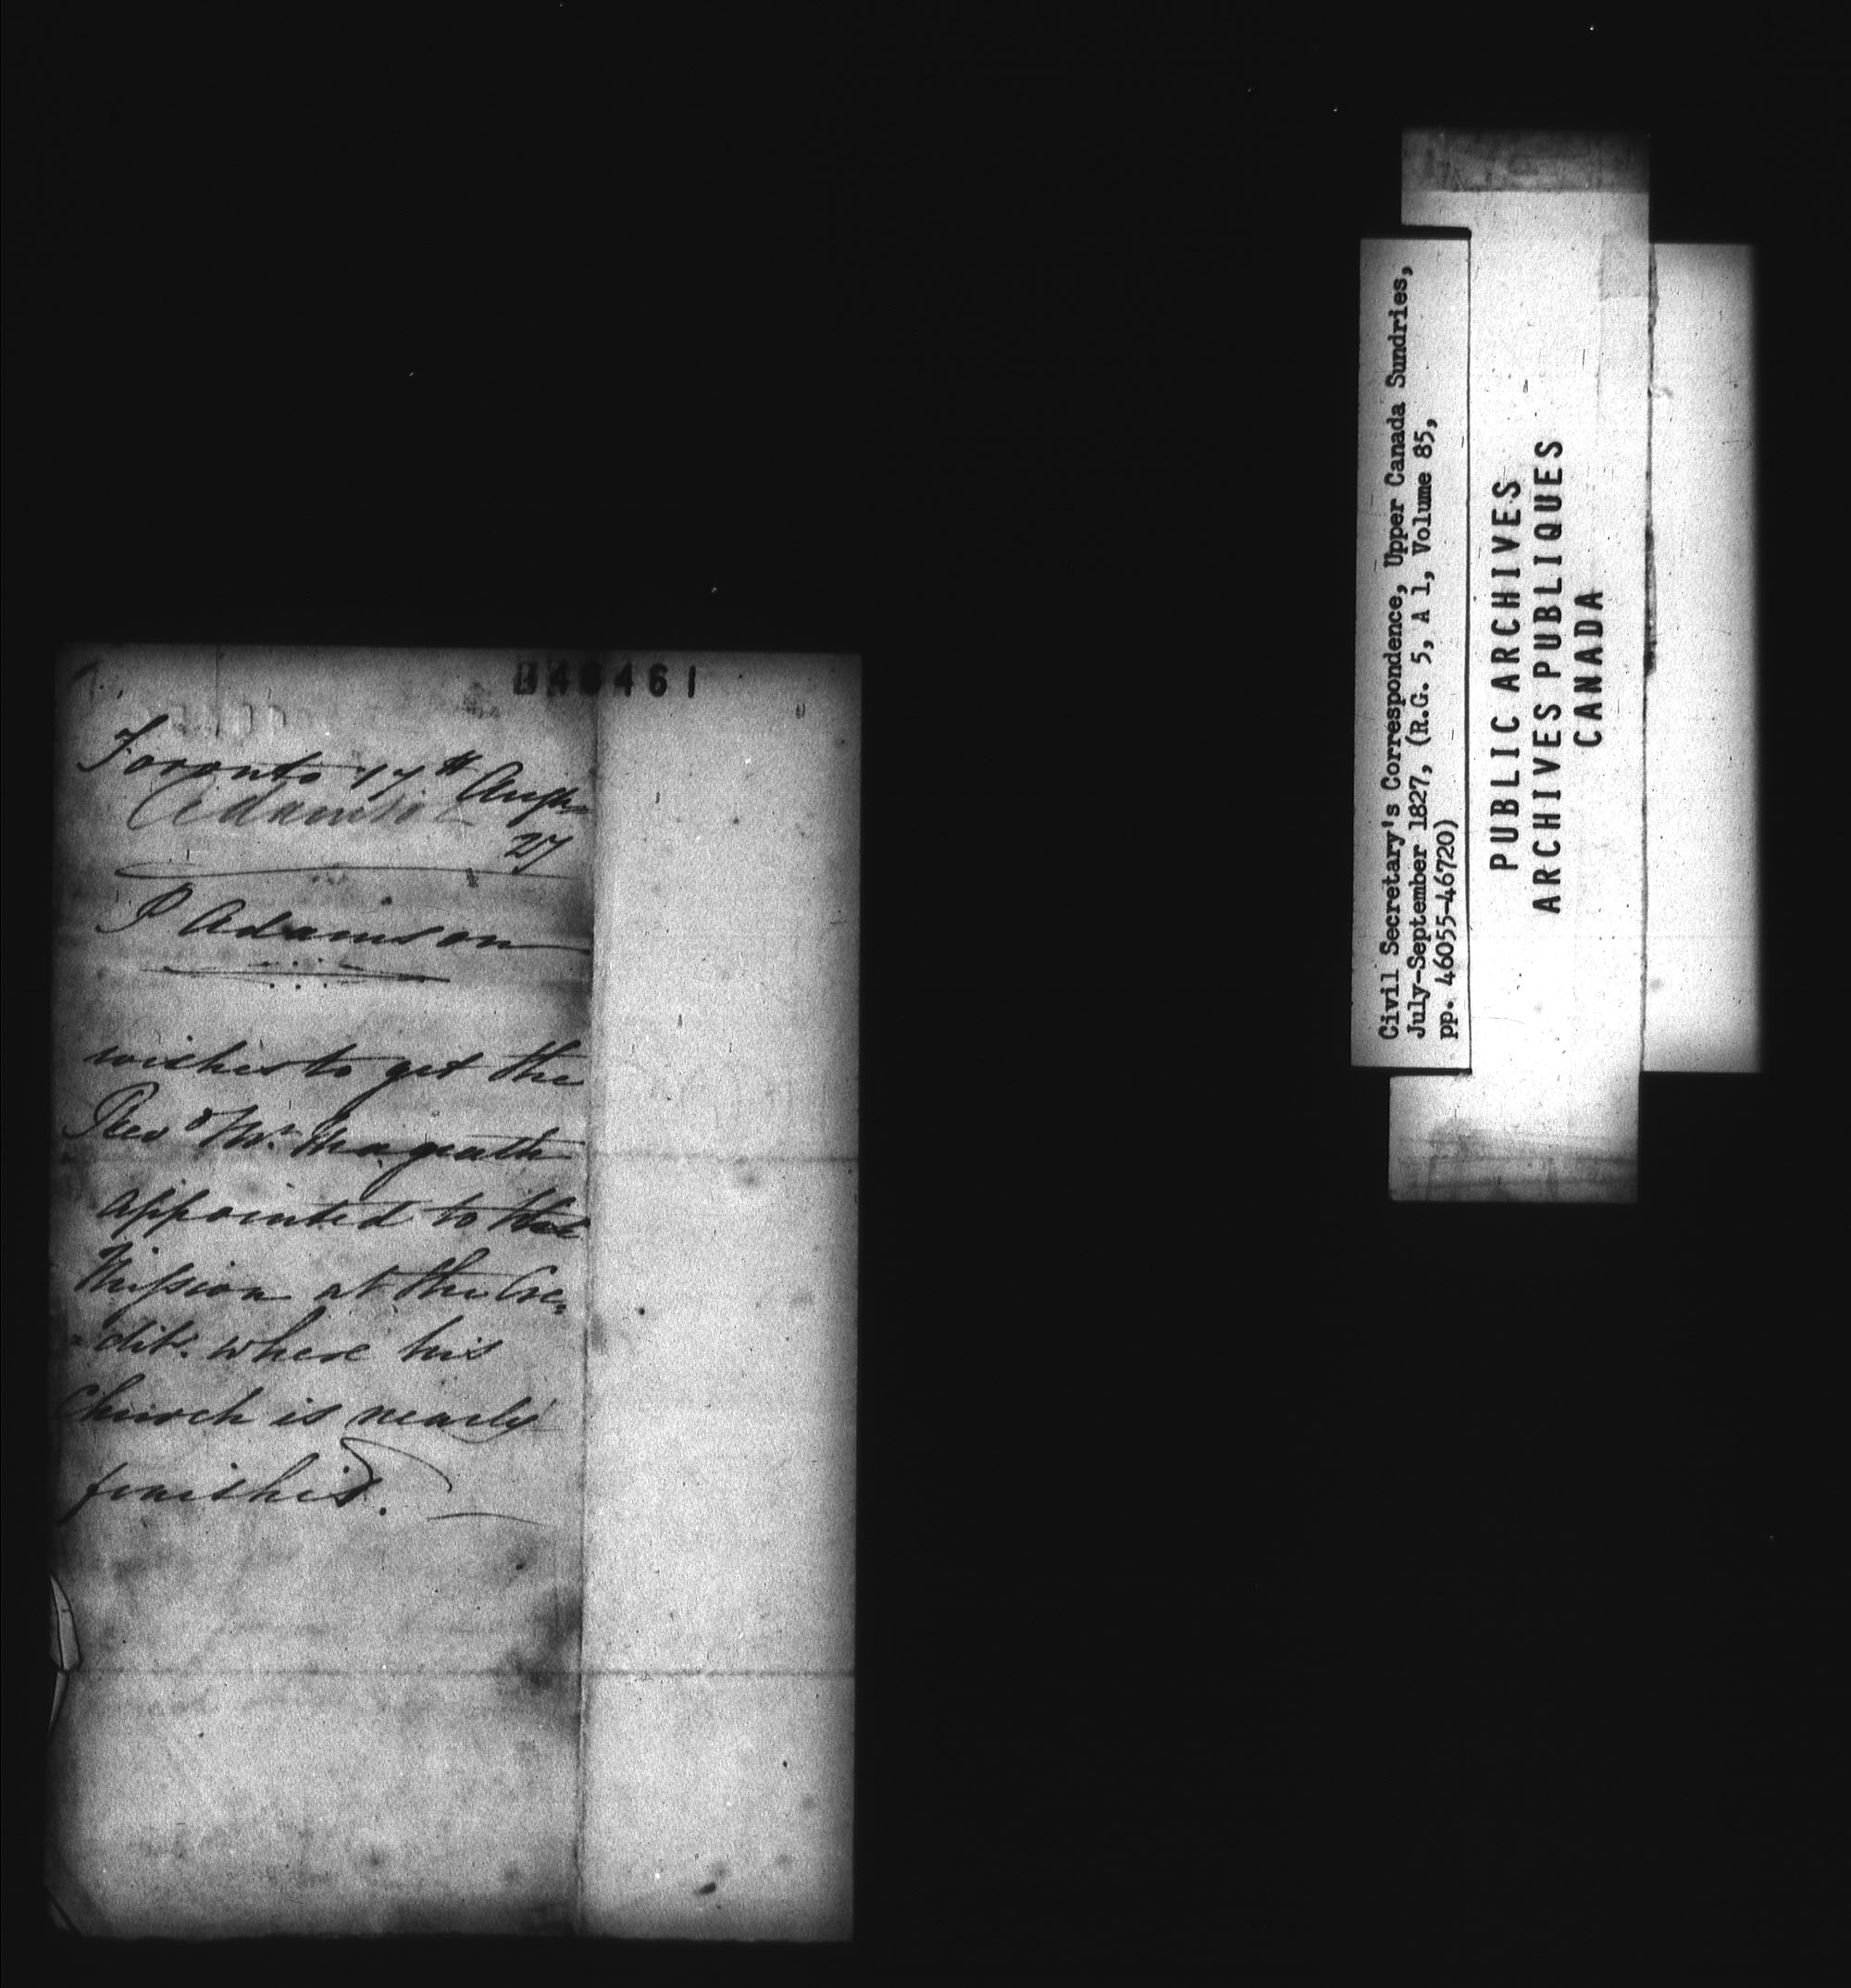 046461
Toronto 17th Augt
Adamson
27
P Adamson
wishes to get the
Revd Mr. Magrath
appointed to the
Mission at the Cre=
=dit. where his
Church is nearly
finished.
Civil Secretary's Correspondence, Upper Canada Sundries,
July-September 1827, (R.G. 5, A 1, Volume 85,
pp. 46055-46720)
PUBLIC ARCHIVES
ARCHIVES PUBLIQUES
CANADA